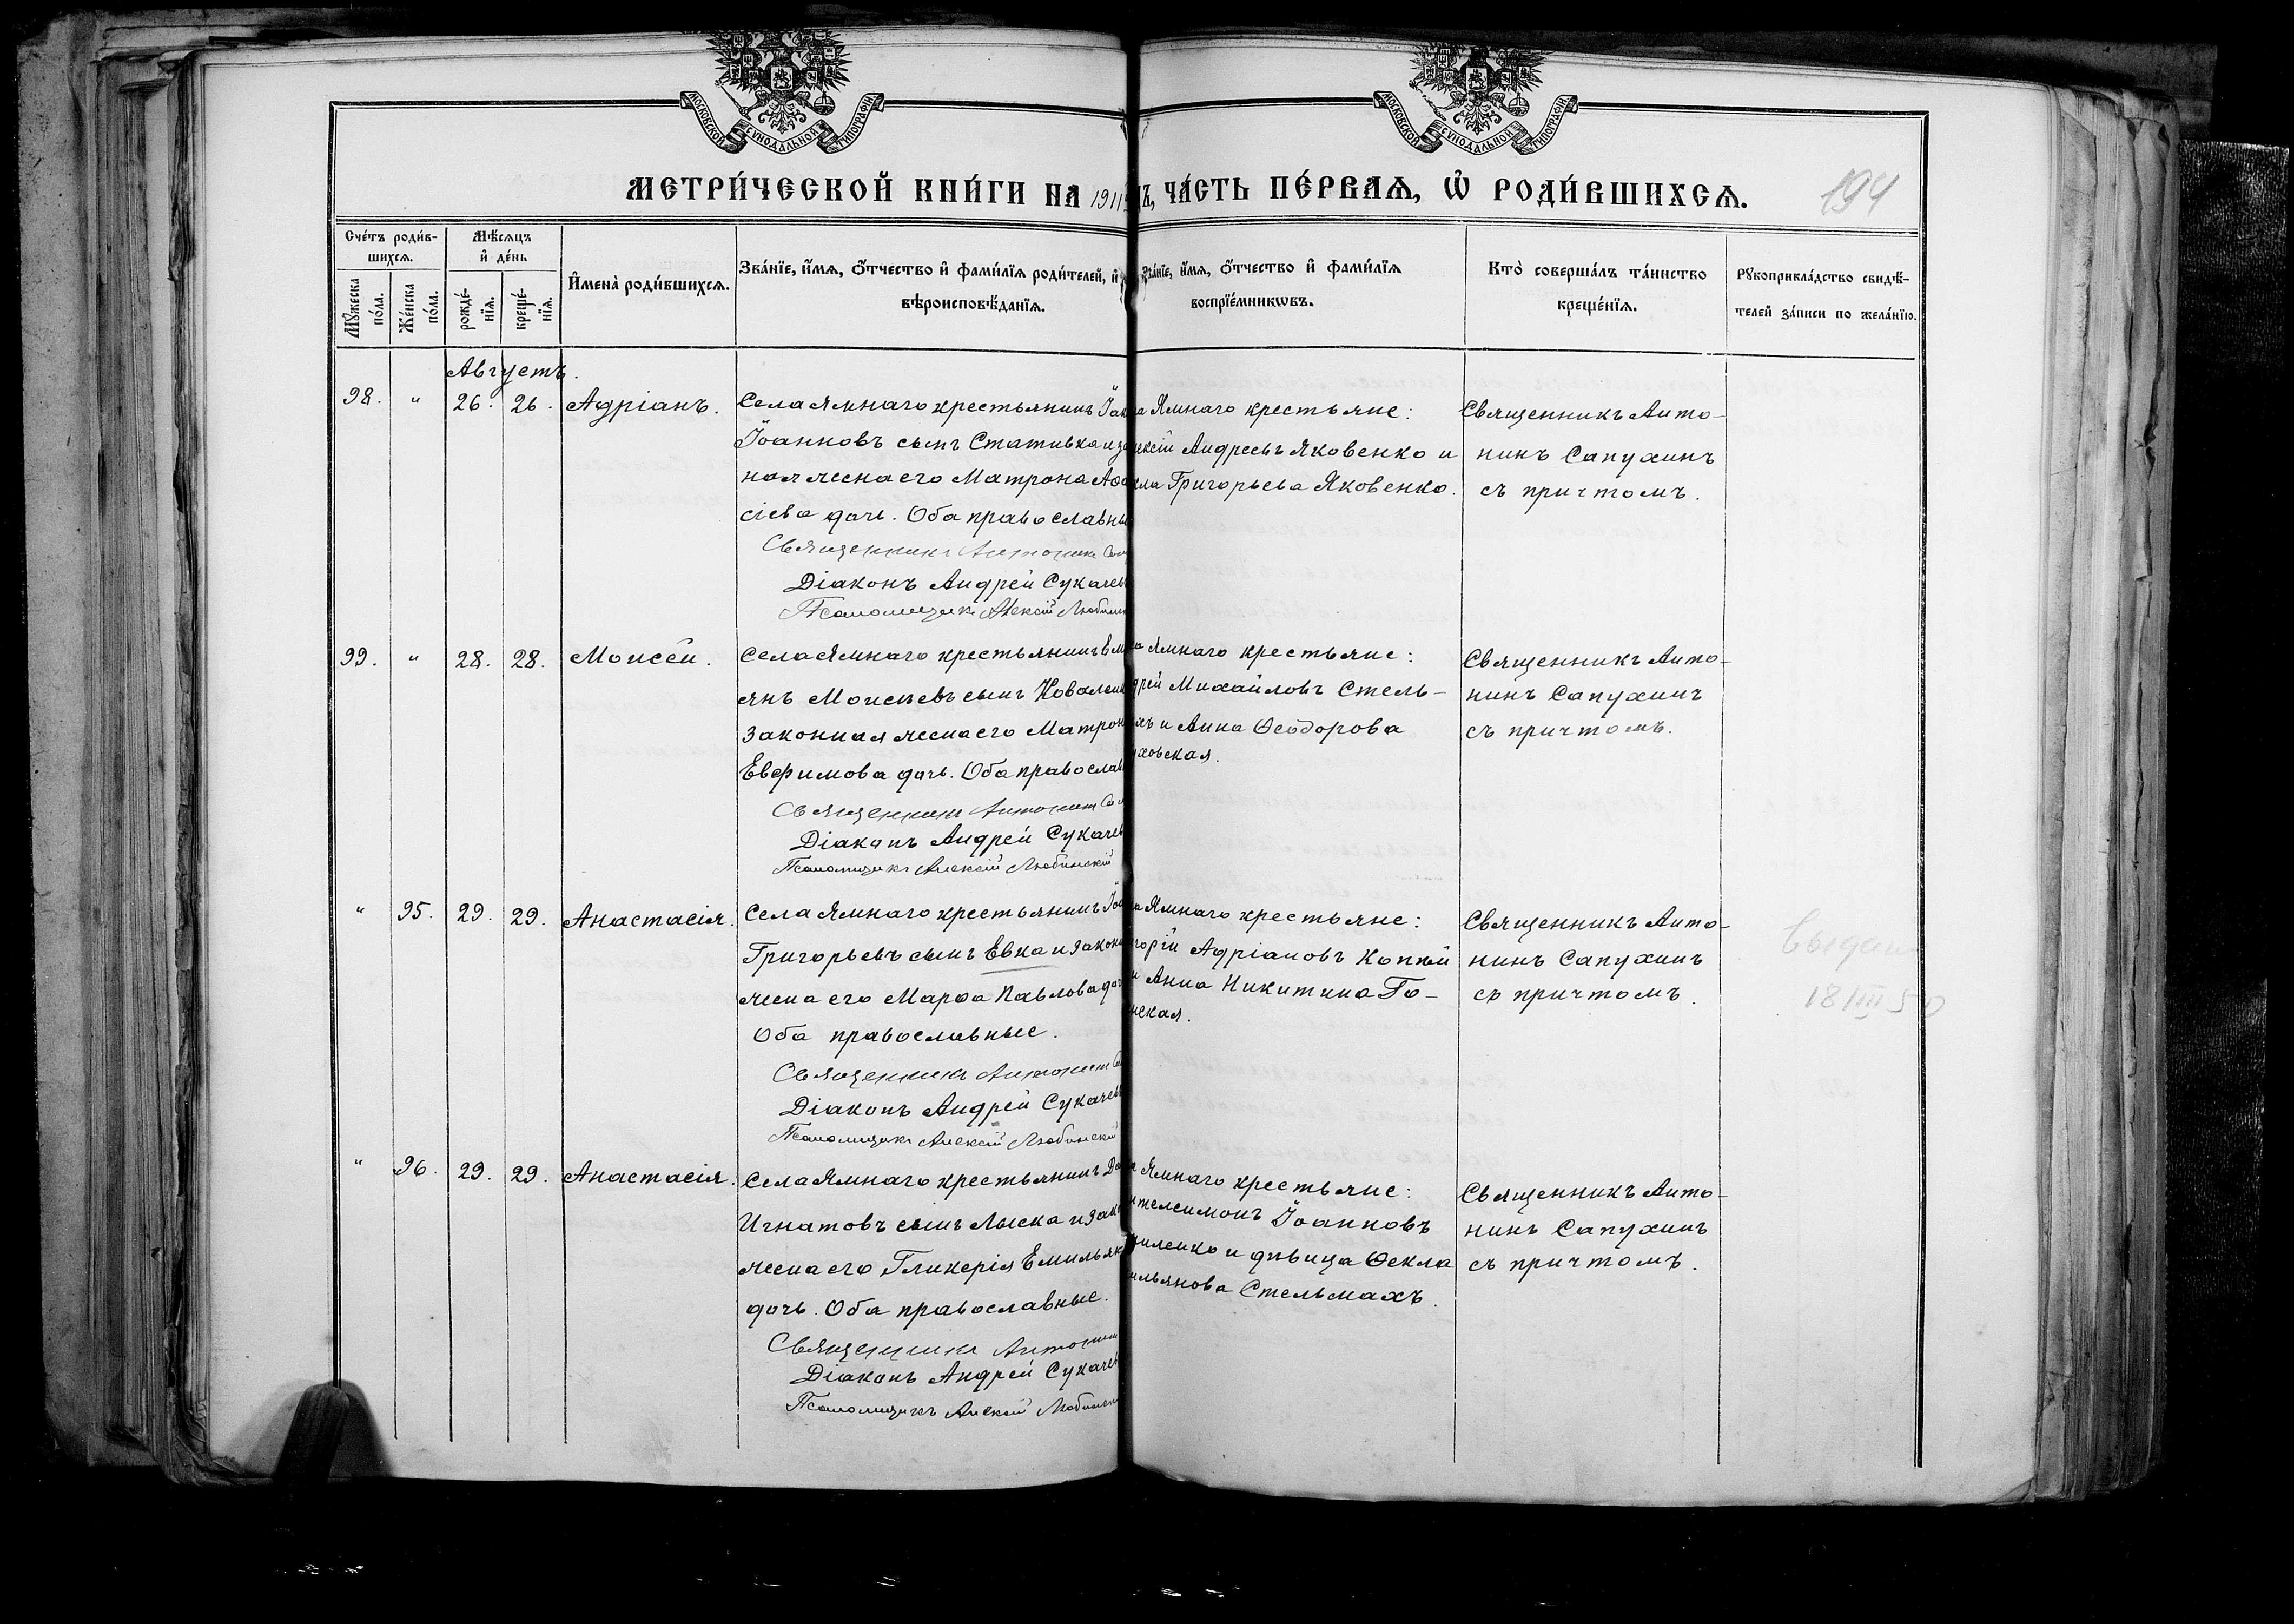 МОСКОВСКОЙ СѴНОДАЛЬНОЙ ТИПОГРАФІИ
МОСКОВСКОЙ СѴНОДАЛЬНОЙ ТИПОГРАФІИ
МЕТРИ́ЧЕСКОЙ КНИ́ГИ НА 1911 ЧА́СТЬ ПЕ́РВАЯ, Ѡ РОДИ́ВШИХСЯ.
194
Сче́тъ роди́в-
шихся.
Мѣ́сяцъ
и де́нь
Имена̀ роди́вшихся.
Зва́нїе, и́мя, о́тчество и фами́лїя роди́телей, и
вѣроисповѣ́данїя.
Зва́нїе, и́мя, о́тчество и фами́лїя
воспрїе́мникѡвъ.
Кто̀ соверша́лъ та́инство
креще́нїя.
Рꙋкоприкла́дство свидѣ́-
телей за́писи по жела́нїю.
Мꙋ́жеска
по́ла.
Же́нска
по́ла.
рожде́-
нїя.
креще́-
нїя.
Августъ.
98. " 26. 26. Адріанъ.
Села Ямнаго крестьянинъ
Іоанновъ сынъ Стативка и
ная жена его Матрона
сіева дочь. Оба православн
Священникъ Антонинъ
Діаконъ Андрей Сукачев
Псаломщикъ Алексій Любинск
Ямнаго крестьяне:
ексій Андреевъ Яковенко и
кла Григорьева Яковенко.
Священникъ Анто-
нинъ Сапухинъ
съ причтомъ.
99. " 28. 28. Моисей.
Села Ямнаго крестьянинъ Еми
янъ Моисеевъ сынъ Коваленк
законная жена его Матрон
Евфимова дочь. Оба православ
Священникъ Антонинъ
Діаконъ Андрей Сукачев
Псаломщикъ Алексій Любинскій
Ямнаго крестьяне:
дрей Михайловъ Стель-
ахъ и Анна Ѳеодорова
ховская.
Священникъ Анто-
нинъ Сапухинъ
съ причтомъ.
" 95. 29. 29. Анастасія.
Села Ямнаго крестьянинъ Іоа
Григорьевъ сынъ Евка и закон
жена его Марѳа Павлова доч
Оба православные.
Священникъ Антонинъ
Діаконъ Андрей Сукачевъ
Псаломщикъ Алексій Любинскій
Ямнаго крестьяне:
горій Адріановъ
и Анна Никитина Го-
нская.
Священникъ Анто-
нинъ Сапухинъ
съ причтомъ.
18 III 50
" 96. 29. 29. Анастасія.
Села Ямнаго крестьянинъ
Игнатовъ сынъ Лыска и зак
жена его Гликерія Емильян
дочь. Оба православные.
Священникъ Антонин
Діаконъ Андрей Сукачев
Псаломщикъ Алексій Любинск
Ямнаго крестьяне:
нтелеимонъ Іоанновъ
иленко и дѣвица Ѳекла
ильянова Стельмахъ.
Священникъ Анто-
нинъ Сапухинъ
съ причтомъ.